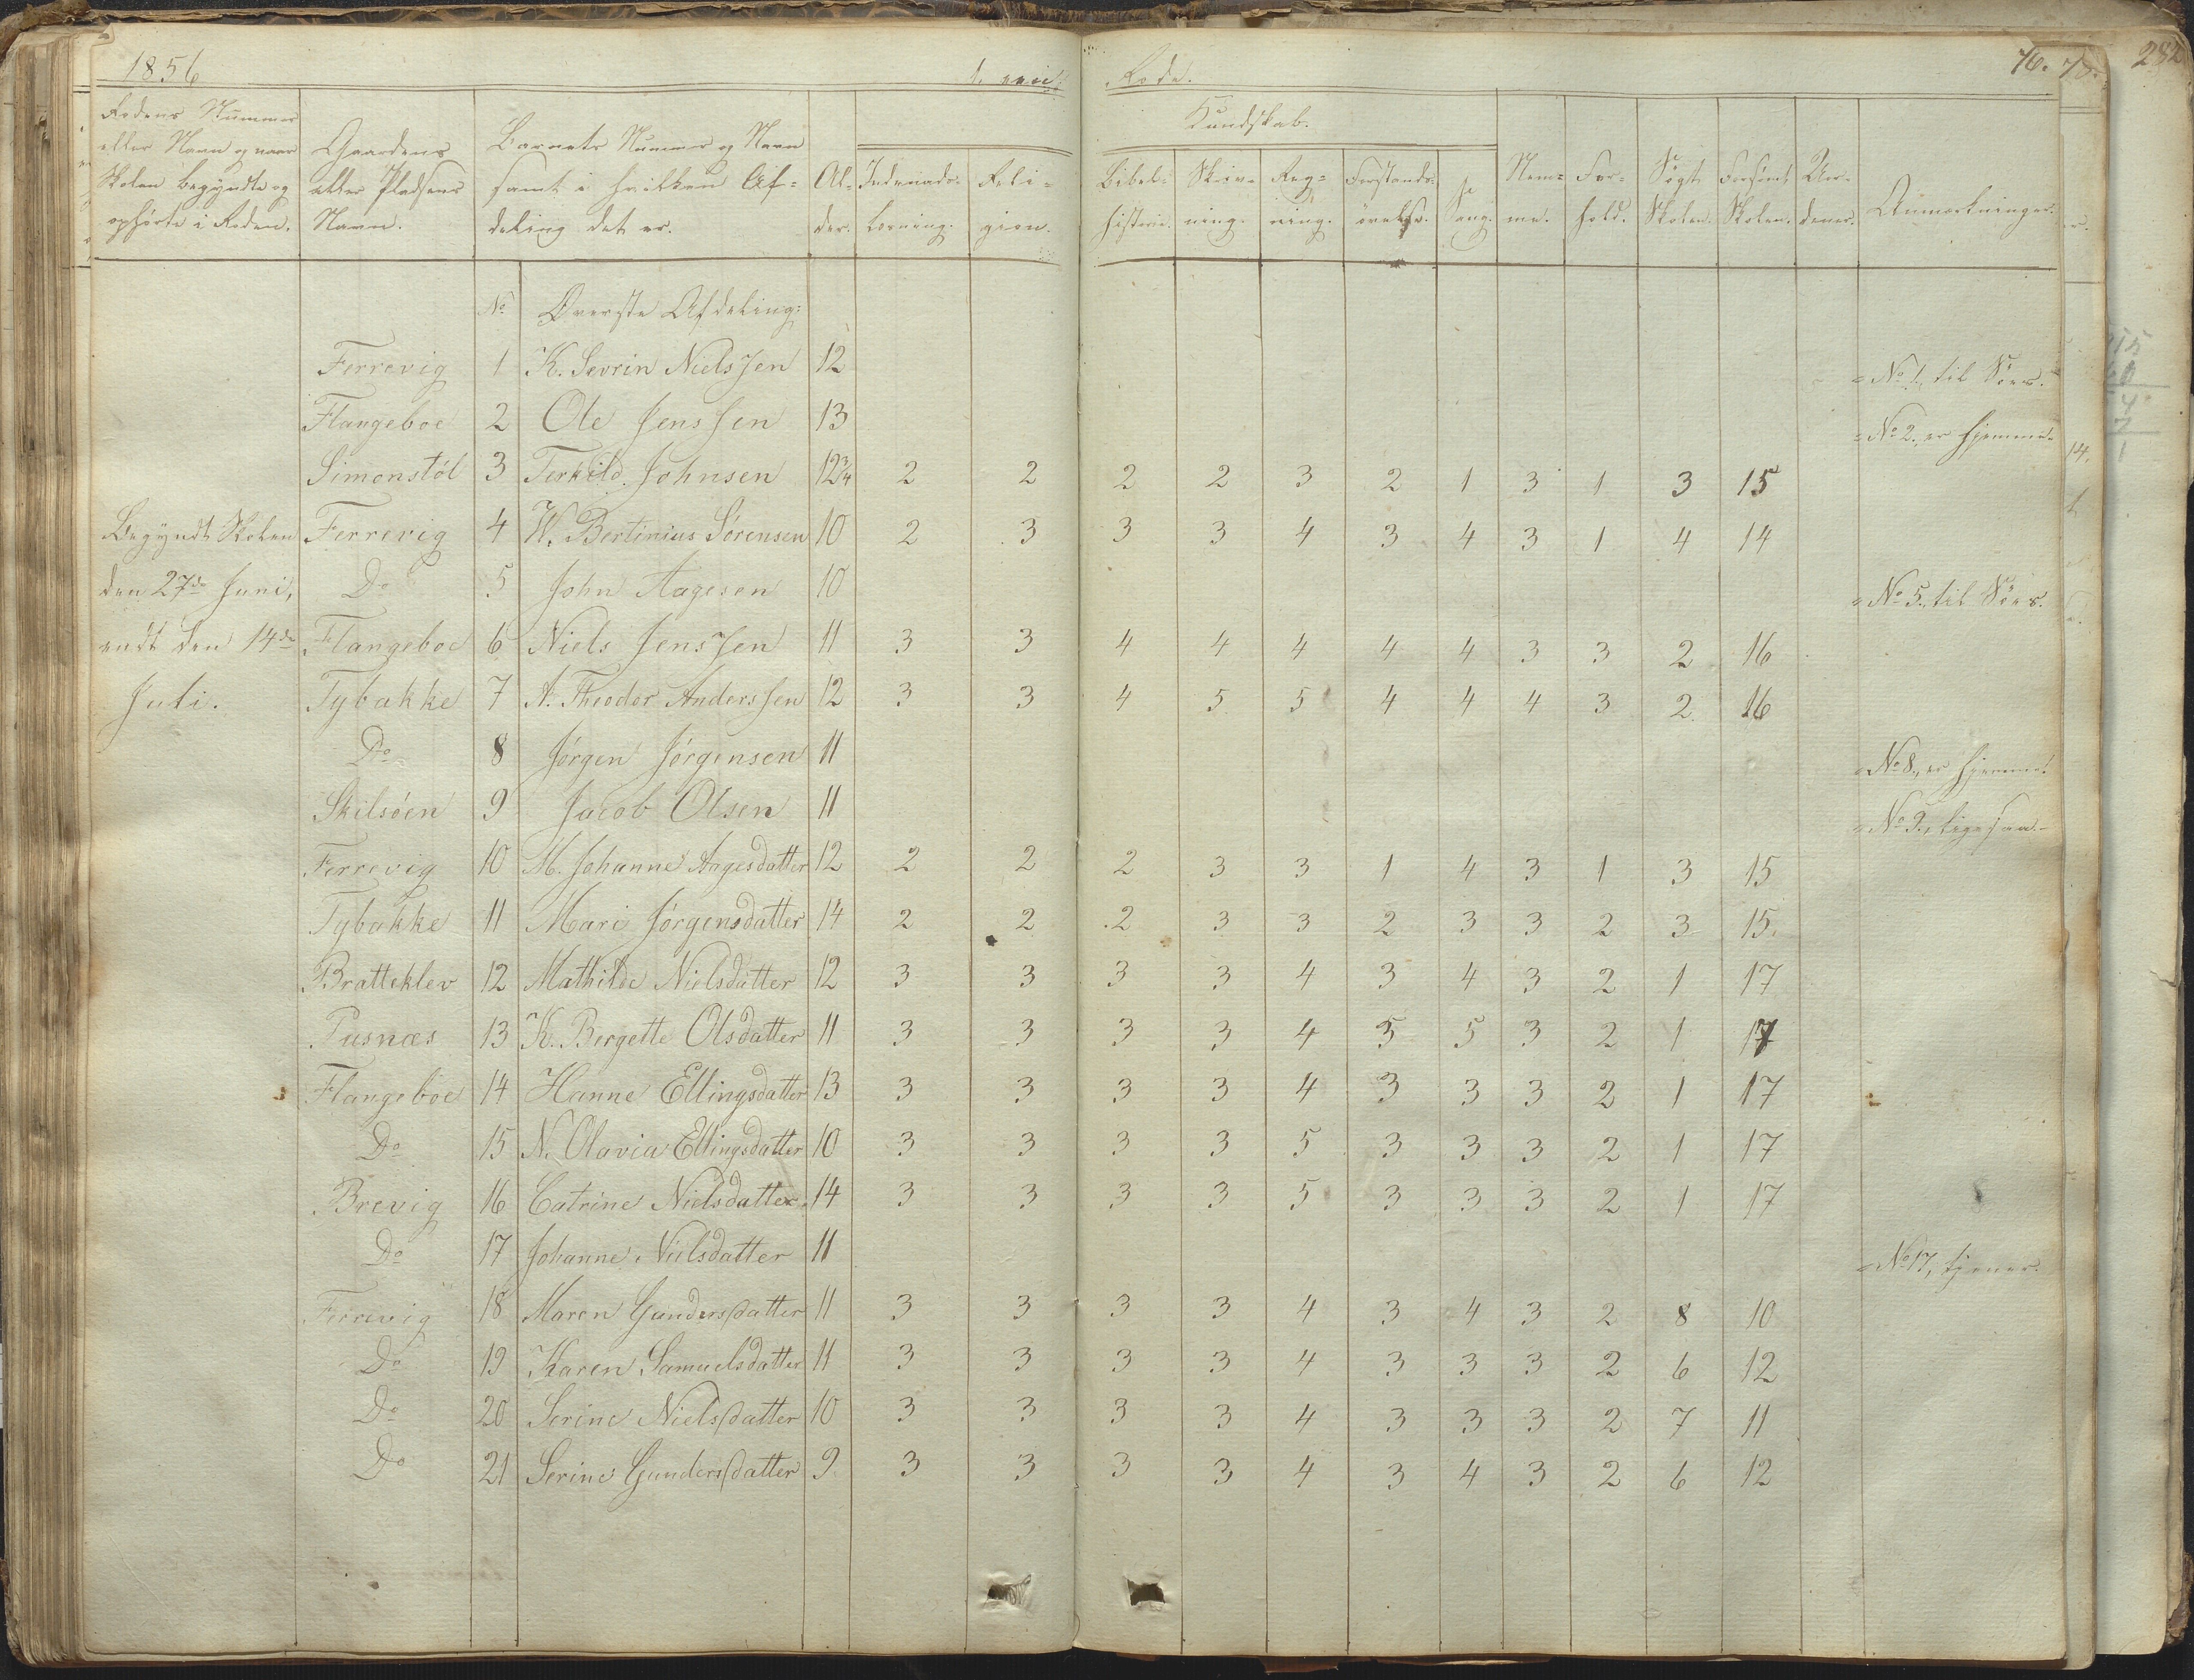 1856 1. Rode. 76. 78. 282
Rodens Nummer eller Navn og naar Skolen begyndte og ophørte i Roden.
Gaardens eller Pladsens Navn.
Barnets Nummer og Navn samt i hvilken Afdeling det er.
Alder.
Indenadslæsning.
Religion.
Kundskab.
Bibelhistorie.
Skrivning.
Regning.
Forstandsøvelse.
Sang.
Nemme.
Forhold.
Søgt Skolen.
Forsømt Skolen.
Anmærkninger.
No Øverste Afdeling:
Ferrevig 1 K. Sevrin Nielssen 12 No 1, til Søes.
Flangeboe 2 Ole Jenssen 13 No 2, er hjemme.
Simonstøl 3 Terkild Johnsen 12 3/4 2 2 2 2 3 2 1 3 1 3 15
Begyndt Skolen Ferrevig 4 W. Bertinius Sørensen 10 2 3 3 3 4 3 4 3 1 4 14
den 27de Juni, Do 5 John Aagesen 10 No 5, til Søes.
endt den 14de Flangeboe 6 Niels Jenssen 11 3 3 4 4 4 4 4 3 3 2 16
Juli. Tybakke 7 A. Theodor Anderssen 12 3 3 4 5 5 4 4 4 3 2 16
Do 8 Jørgen Jørgensen 11 No 8, er hjemme.
Skilsøen 9 Jacob Olsen 11 No 9, ligesaa.
Ferrevig 10 M. Johanne Aagesdatter 12 2 2 2 3 3 1 4 3 1 3 15
Tybakke 11 Mari Jørgensdatter 14 2 2 2 3 3 2 3 3 2 3 15
Bratteklev 12 Mathilde Nielsdatter 12 3 3 3 3 4 3 4 3 2 1 17
Pusnæs 13 K. Bergette Olsdatter 11 3 3 3 3 4 5 5 3 2 1 17
Flangeboe 14 Hanne Ellingsdatter 13 3 3 3 3 4 3 3 3 2 1 17
Do 15 N. Olavia Ellingsdatter 10 3 3 3 3 5 3 3 3 2 1 17
Brevig 16 Catrine Nielsdatter 14 3 3 3 3 5 3 3 3 2 1 17
Do 17 Johanne Nielsdatter 11 No 17, tjener.
Ferrevig 18 Maren Gundersdatter 11 3 3 3 3 4 3 4 3 2 8 10
Do 19 Karen Samuelsdatter 11 3 3 3 3 4 3 3 3 2 6 12
Do 20 Serine Nielsdatter 10 3 3 3 3 4 3 3 3 2 7 11
Do 21 Serine Gundersdatter 9 3 3 3 3 4 3 4 3 2 6 12